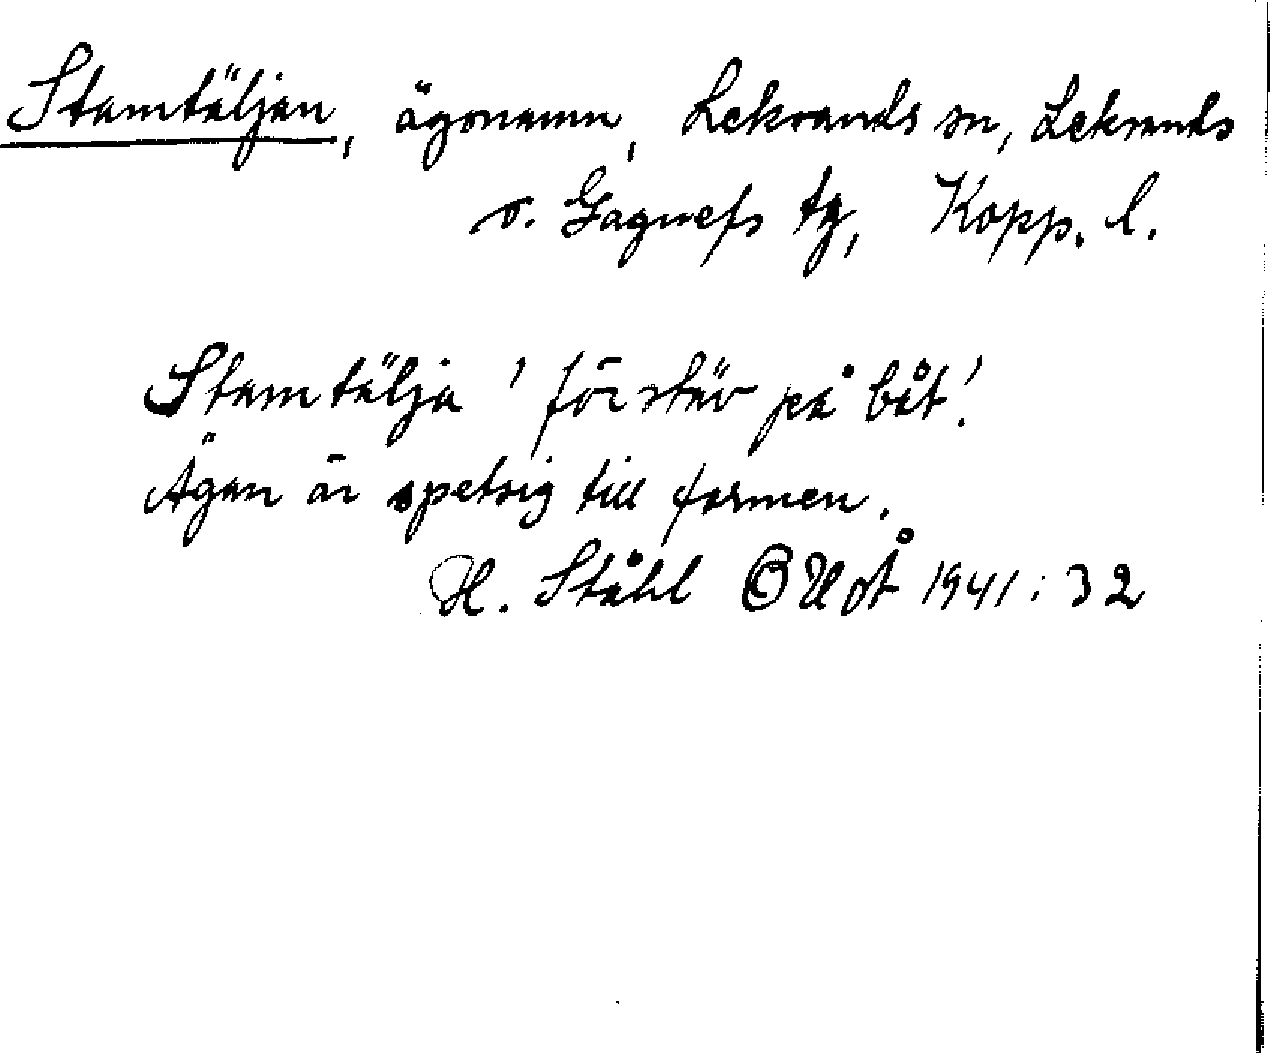 Stamtäljan, ägonamn, Leksands sn, Leksands
o. Gagnefs tg, Kopp. l.
Stamtälja 'förstäv på båt'.
Ägan är spetsig till formen.
H. Ståhl OUÅ 1941: 32